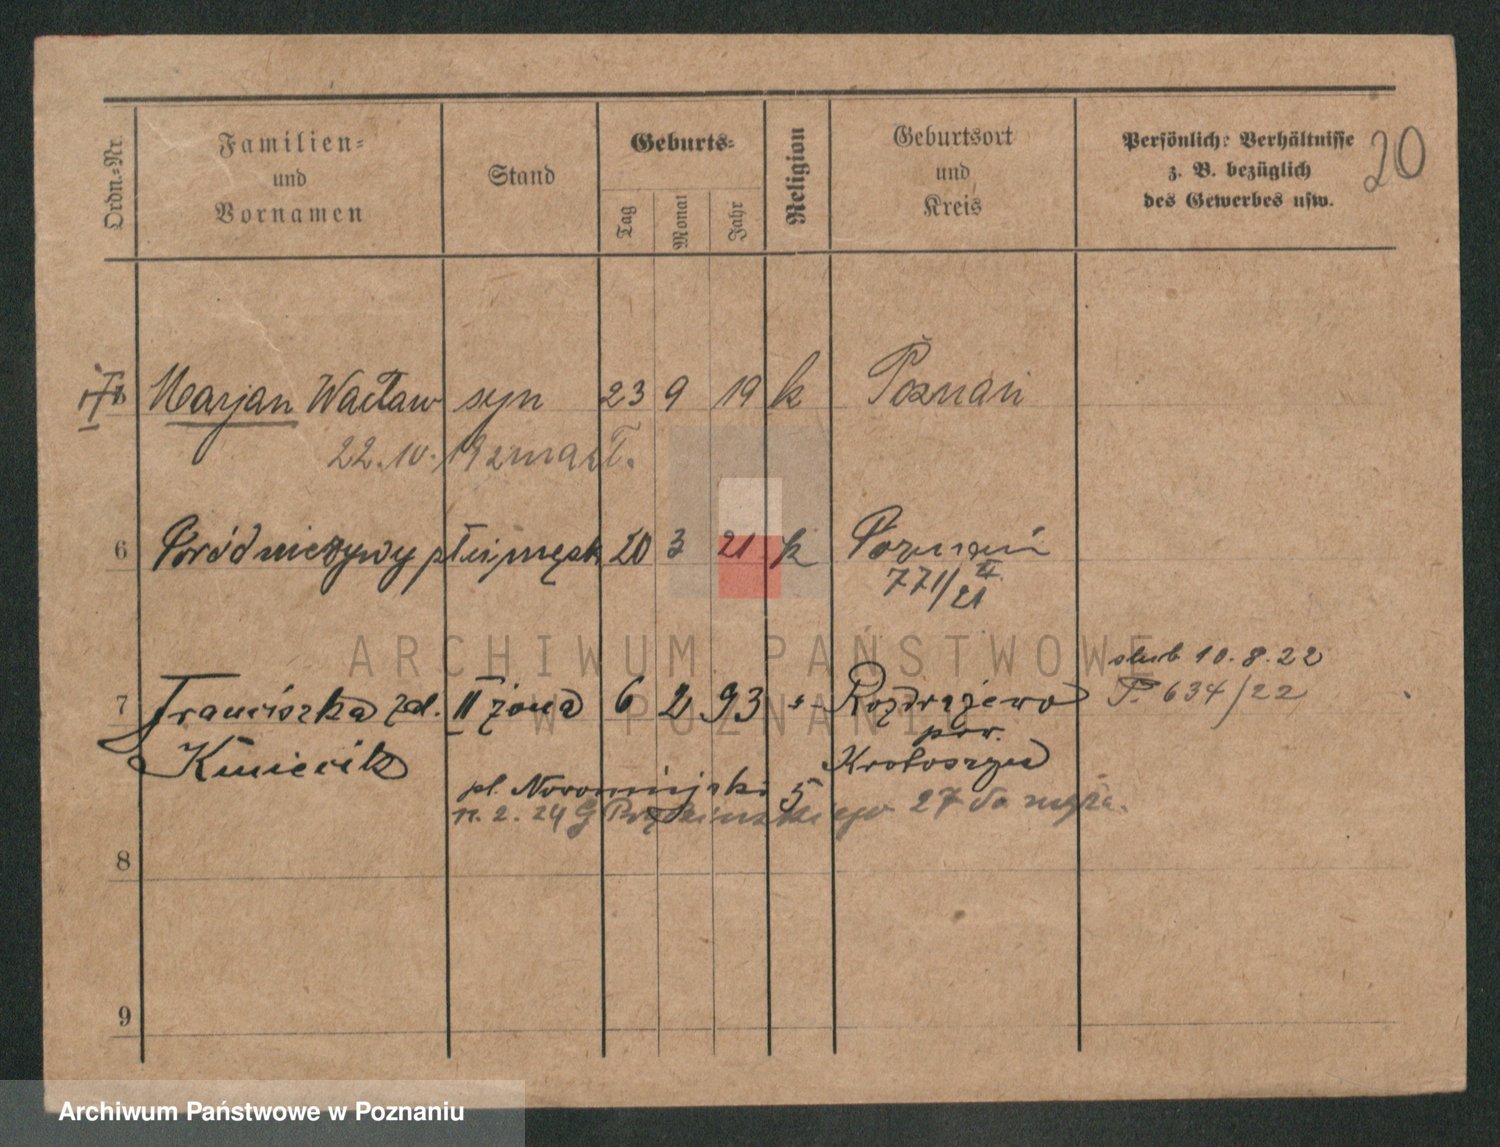 Ordn.-Nr.
Familien-
und
Vornamen
Stand
Geburts-
Tag
Monat
Jahr
Religion
Geburtsort
und
Kreis
Persönlich: Verhältnisse
z. B. bezüglich
des Gewerbes usw.
20
Marjan Wacław syn 23 9 19 k Poznań
22.10. 19 zmarł.
6 Poród nieżywy płci męsk 20 3 21 k Poznań
771/21 II
ślub 10.8.22
7 Franciszka zd. II żona 6 2 93 Rozdrażewo P. 634/22
Kmiecik pow.
Krotoszyn
pl. Nowomiejski 5
11.2.24 G 27 do męża.
8
9
ARCHIWUM PAŃSTWOWE
W POZNANIU
Archiwum Państwowe w Poznaniu